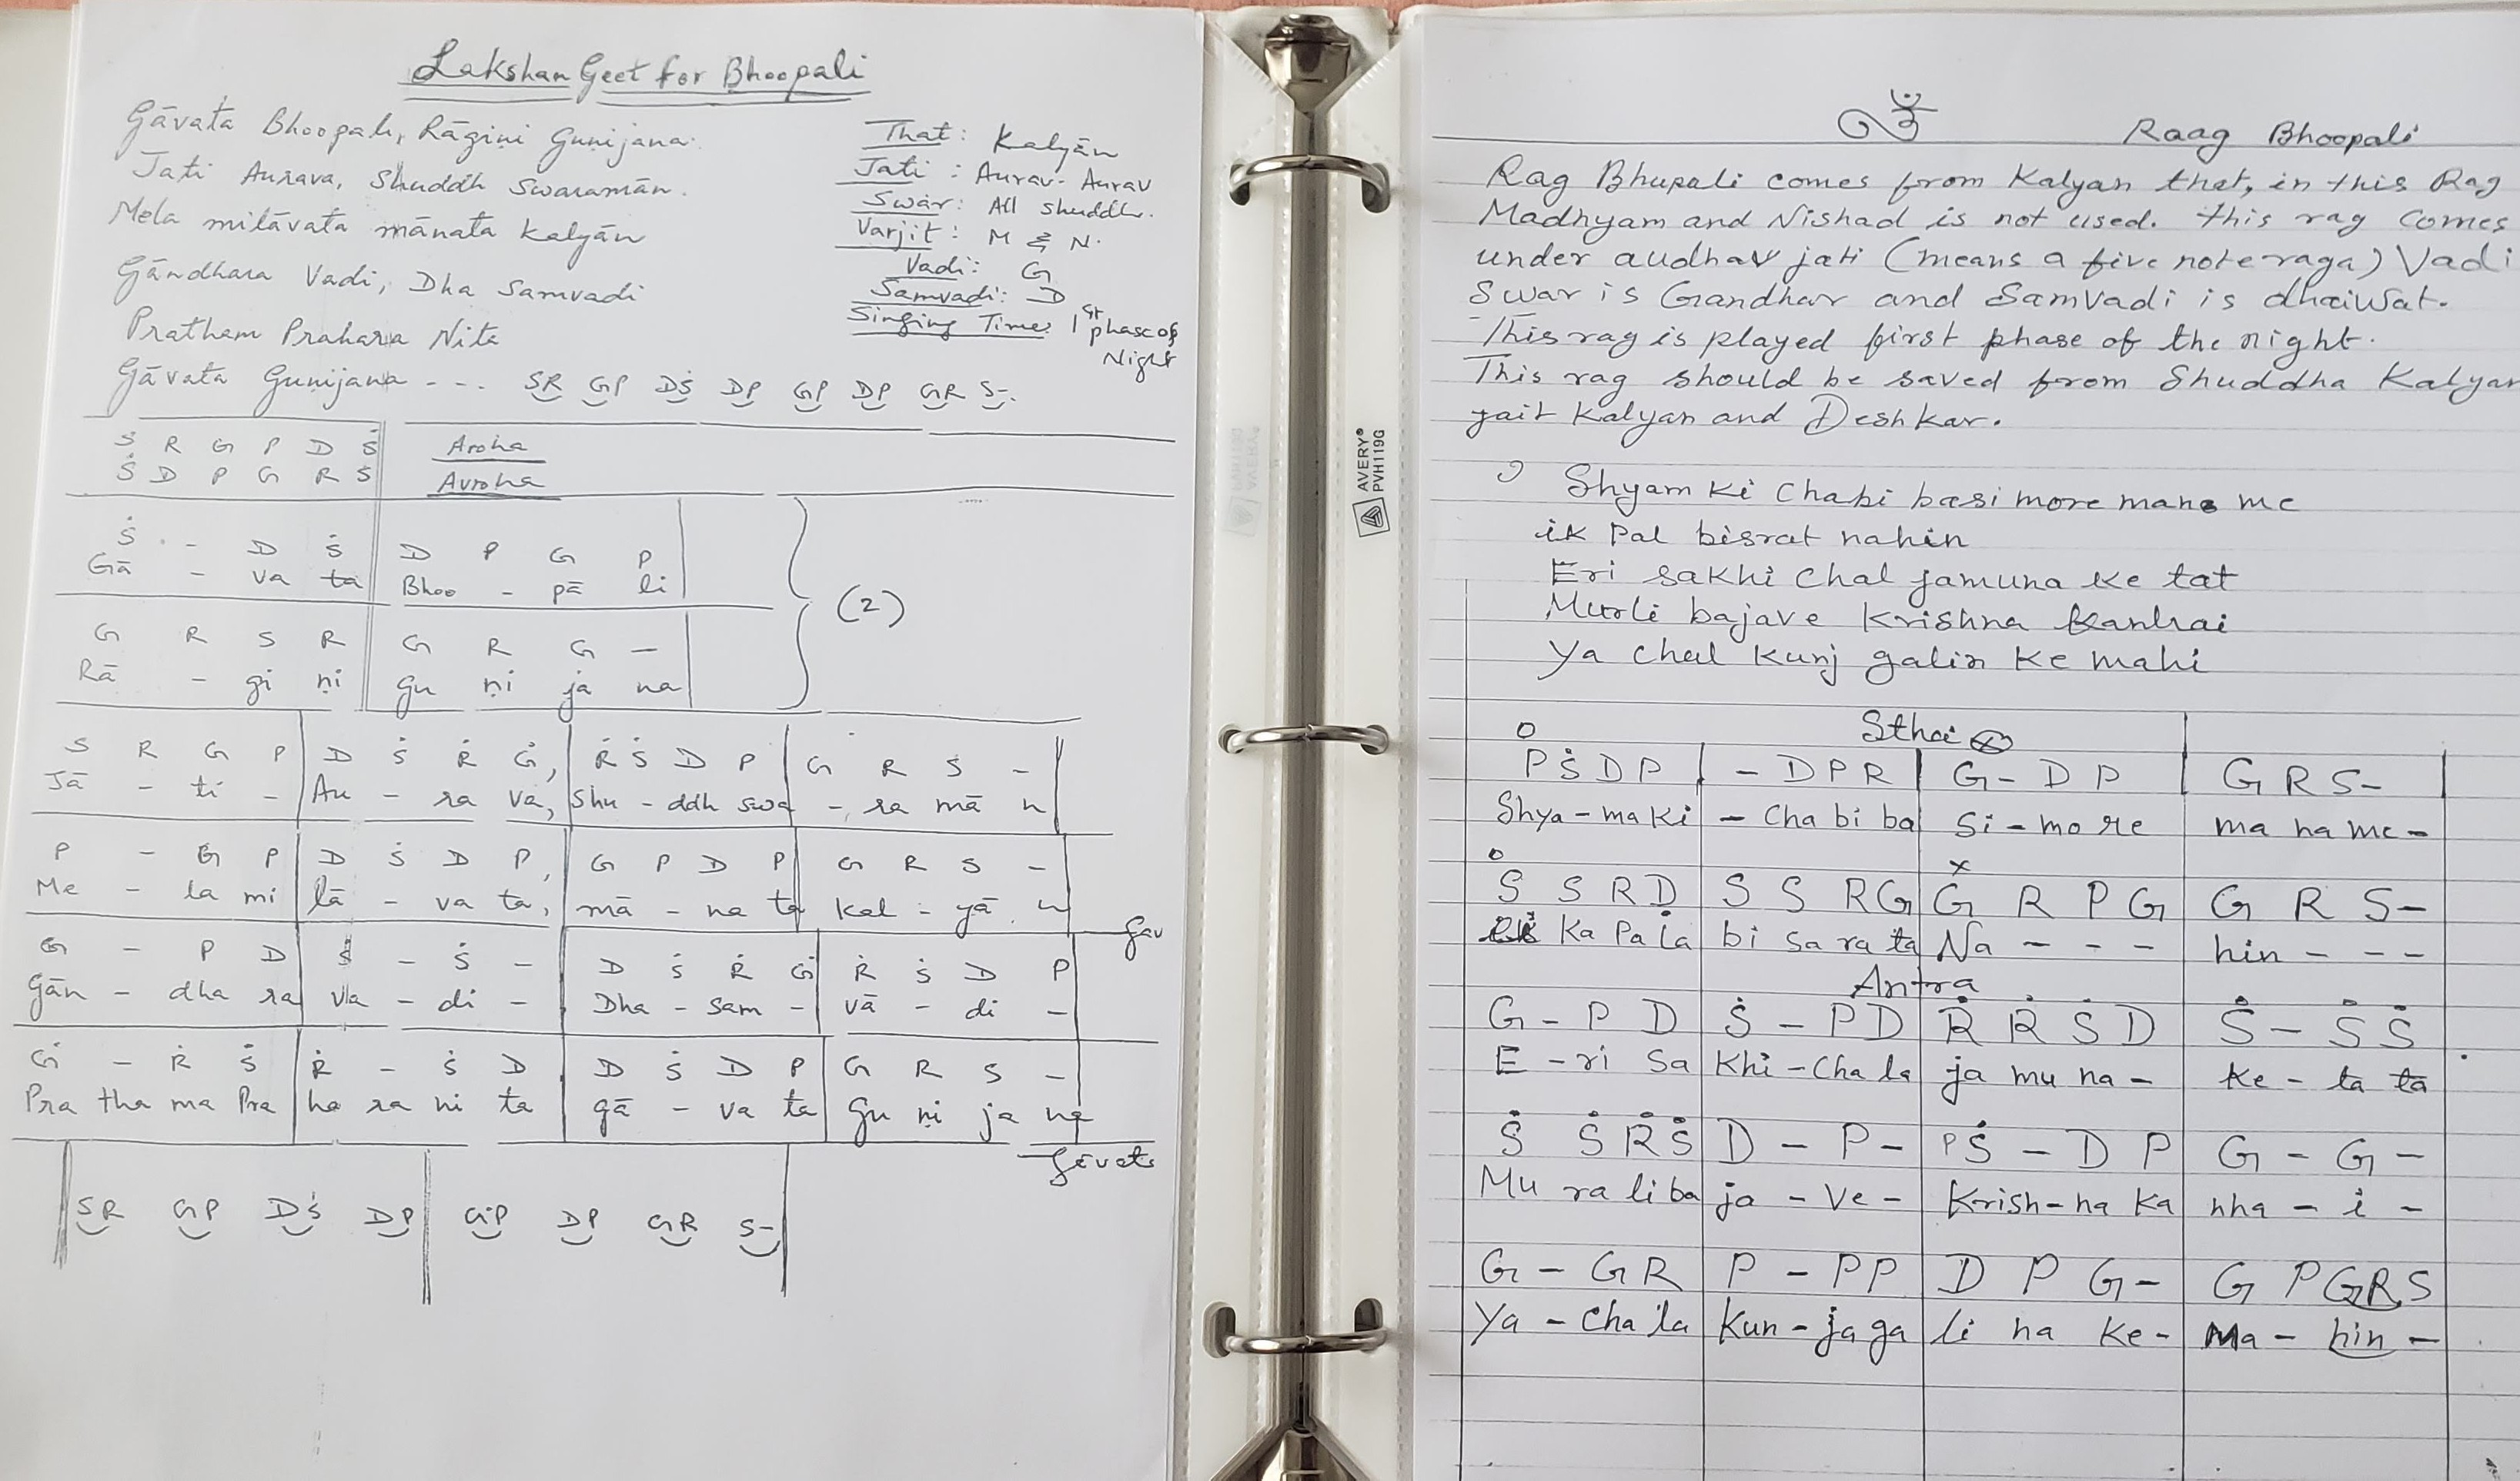 Lakshan Geet for Bhoopali
Gāvata Bhoopali, Rāgiṇi Guṇijana.
Jati Aurava, Shuddh Swaramān.
Mela milāvata mānata Kalyān
Gāndhara Vadi, Dha Samvadi
Pratham Prahara Nita
Gāvata Gunijana - - - . SR GP DṠ DP GP DP GR S-.
That: Kalyān
Jati : Aurav- Aurav
Swar: All Shuddh.
Varjit: M & N.
Vadi: G
Samvadi: D
Singing Time: 1st phase of
Night
S R G P D Ṡ Aroha
Ṡ D P G R S Avroha
Ṡ - D Ṡ D P G P
Gā - va ta Bhoo - pā li
(2)
G R S R G R G —
Rā - gi ṇi gu ṇi ja na
S R G P D Ṡ Ṙ Ġ, Ṙ Ṡ D P G R S -
Jā - ti - Au - ra va, Shu - ddh swa - ra mā n
P - G P D Ṡ D P, G P D P G R S -
Me - la mi lā - va ta, mā - na ta Kal - yā n
Gav
G - P D Ṡ - Ṡ - D Ṡ Ṙ Ġ Ṙ Ṡ D P
Gān - dha ra Va - di - Dha - Sam - vā - di -
Ġ - Ṙ Ṡ Ṙ - Ṡ D D Ṡ D P G R S -
Pra tha ma Pra ha ra ni ta gā - va ta Gu ṇi ja na
Gāvata
SR GP DṠ DP GP DP GR S-
AVERY®
PVH119G
ॐ Raag Bhoopali
Rag Bhupali comes from Kalyan that, in this Rag
Madhyam and Nishad is not used. this rag comes
under audhav jati (means a five note raga) Vadi
Swar is Gandhar and Samvadi is dhaiwat.
This rag is played first phase of the night.
This rag should be saved from Shuddha Kalyan
jait Kalyan and Deshkar.
Shyam Ki Chabi basi more mana me
ik Pal bisrat nahin
Eri sakhi Chal jamuna ke tat
Murli bajave Krishna Kanhai
Ya chal Kunj galin Ke mahi
Sthai
o x
P Ṡ D P - D P R G - D P G R S-
Shya - ma Ki - Cha bi ba Si - mo re ma na me -
o x
S S R D S S R G G R P G G R S-
Ka Pa la bi sa ra ta Na - - - hin - - -
Antra
G - P D Ṡ - P D Ṙ Ṙ Ṡ D Ṡ - Ṡ Ṡ
E - ri Sa Khi - Cha la ja mu na - Ke - ta ta
Ṡ Ṡ Ṙ Ṡ D - P - PṠ - D P G - G -
Mu ra li ba ja - Ve - Krish - na Ka nha - i -
G - G R P - P P D P G - G P GRS
Ya - Cha la Kun - ja ga li na Ke - Ma - hin -